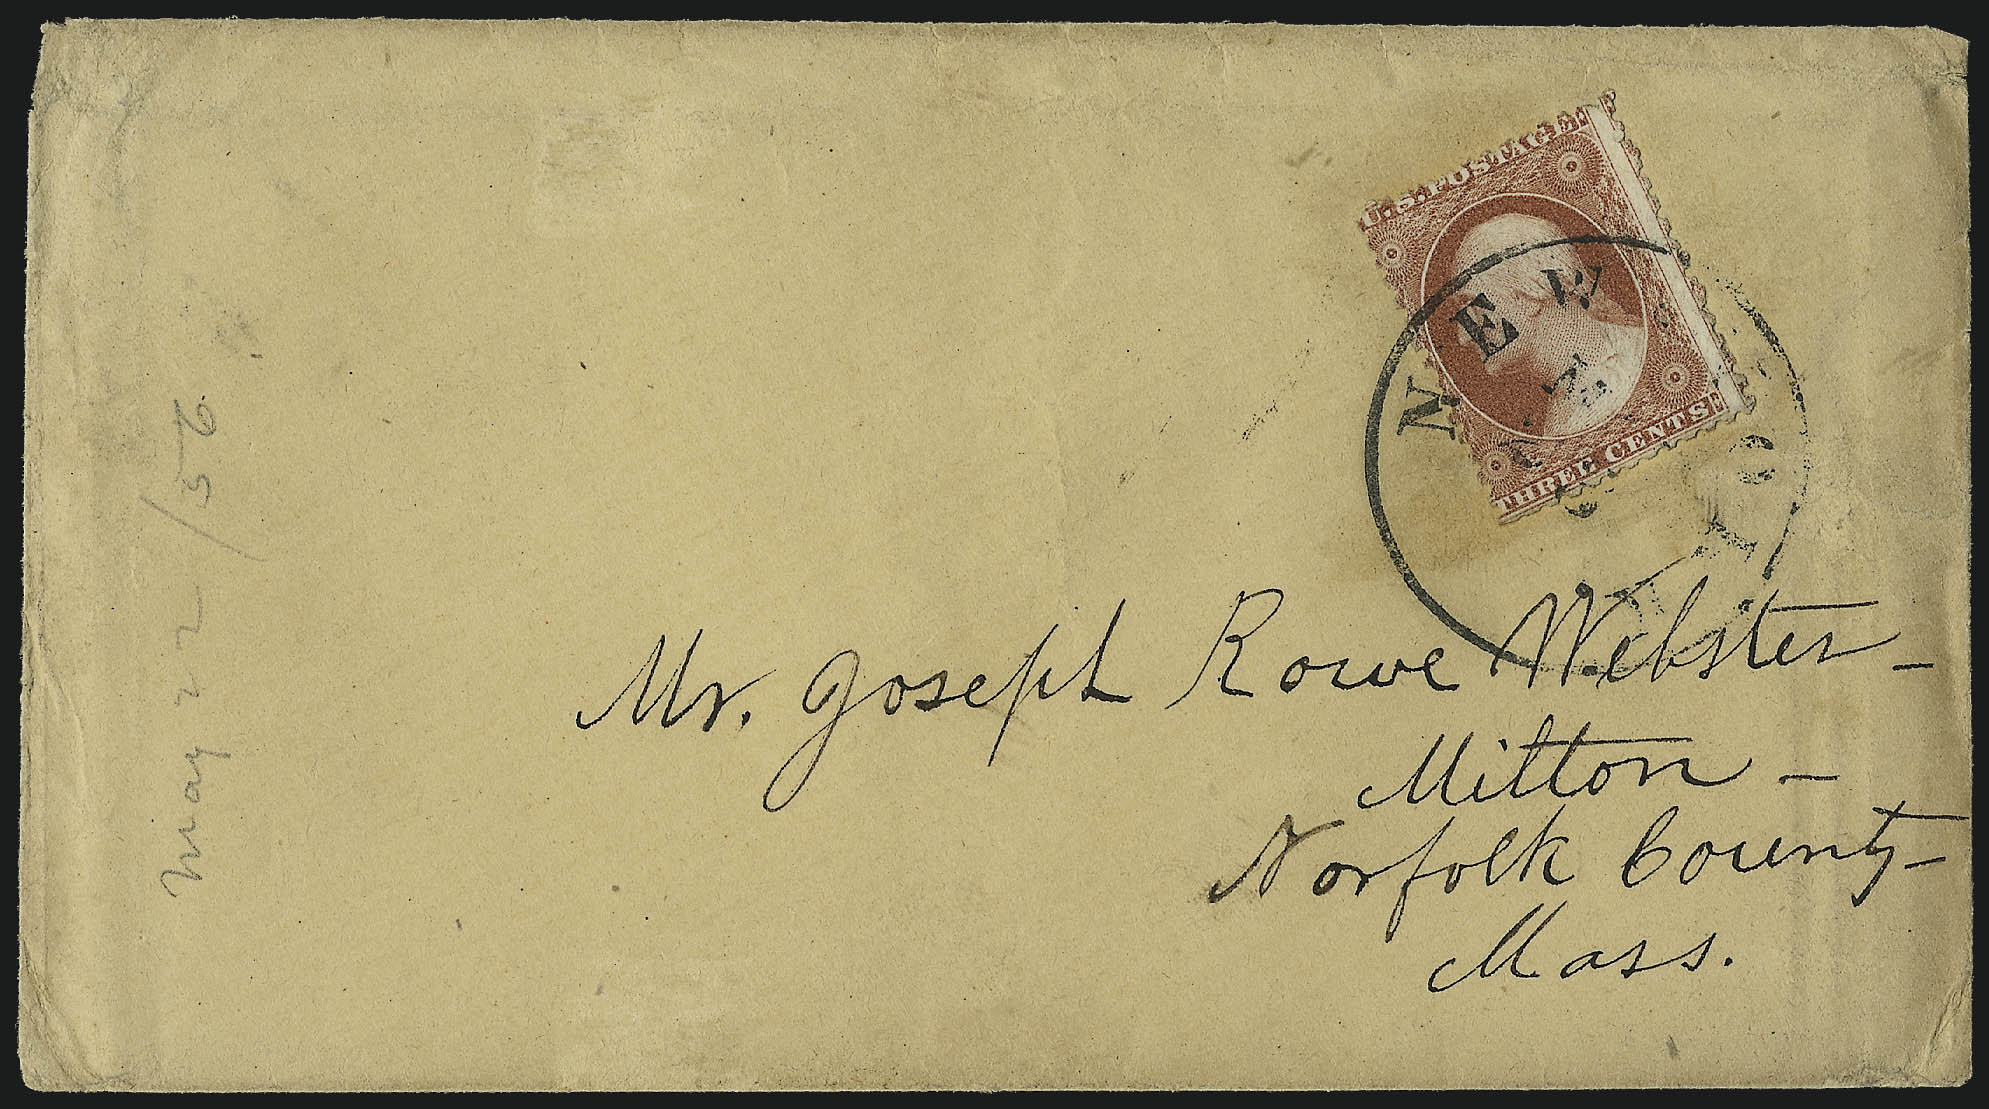 U.S. POSTAGE
THREE CENTS
NEW
Mr. Joseph Rowe Webster –
Milton –
Norfolk County –
Mass.
May 22/56